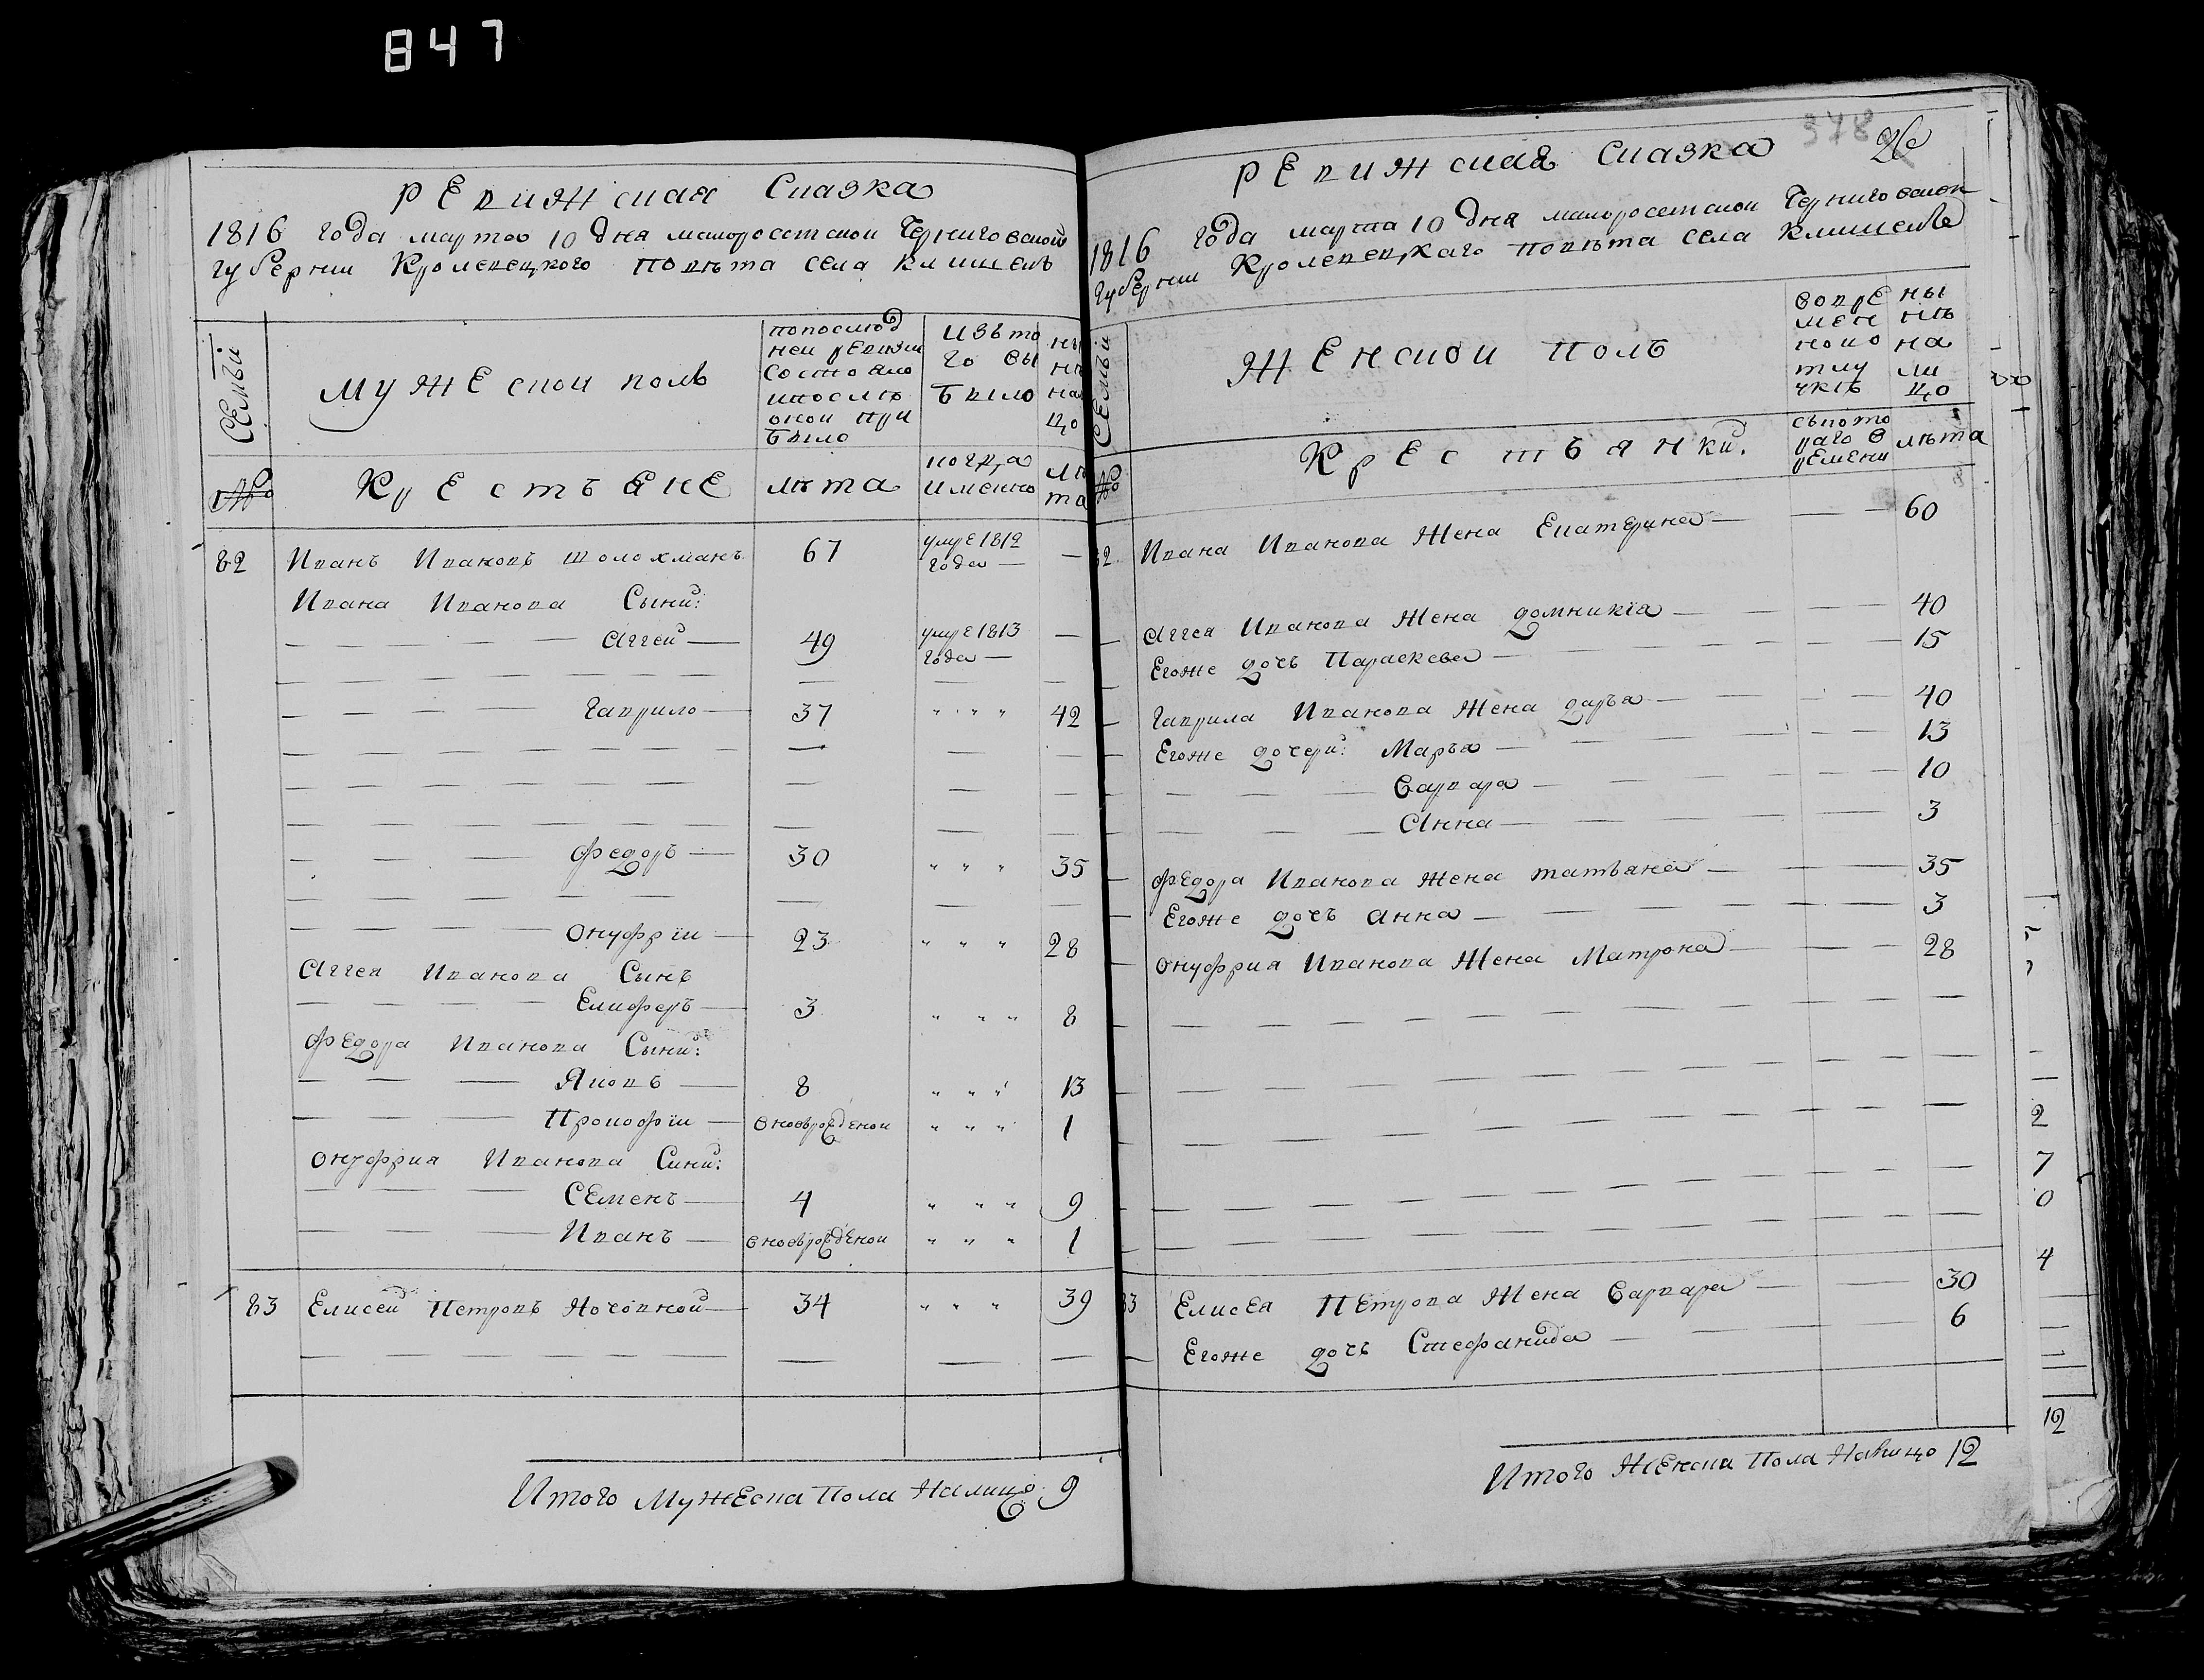 847
РЕвижская Сказка
1816 года марта 10 дня малоросетской Черниговской
губернии Кролевецкого повѣта села Клишекъ
Семьи
мужеской полъ
попослед
ней ревизии
состояло
ипослѣ
оной при
было
Изъ то
го вы
было
ны
нѣ
на
цо
№
Крестьяне
лѣта
когда
именно
лѣ
та
82 Иванъ Ивановъ Шолохманъ 67 умре 1812 года —
Ивана Иванова Сыни:
Аггей 49 умре 1813 года —
Гаврило 37 " " " 42
Федоръ 30 " " " 35
Онуфрїи 23 " " " 28
Аггея Иванова Сынъ
Елиферъ 3 " " " 8
Федора Иванова Сыни:
Яковъ 8 " " " 13
Прокофїи вновьрожденои " " " 1
Онуфрия Иванова Сини:
Семенъ 4 " " " 9
Иванъ вновьрожденои " " " 1
83 Елисей Петровъ Ночовной 34 " " " 39
Итого Мужеска Пола Налицо 9
378
26
РЕвижская Сказка
1816 года марта 10 дня малоросетской Черниговской
губернии Кролевецкаго повѣта села Клишекъ
Семьи
Женской полъ
вовре
мен
ной о
тлу
чкѣ
ны
нѣ
на
ли
цо
№
Крестьянки.
съкото
раго в
ремени
лѣта
82 Ивана Иванова Жена Екатерина 60
Аггея Иванова Жена Домникїя 40
Егоже дочь Параскева 15
Гаврила Иванова Жена Даръя 40
Егоже дочери: Маръя 13
Варвара 10
Анна 3
Федора Иванова Жена татьяна 35
Егоже дочъ Анна 3
Онуфрия Иванова Жена Матрона 28
83 Елисея Петрова Жена Варвара 30
Егоже дочь Стефанида 6
Итого Женска Пола Налицо 12
2
7
0
4
12